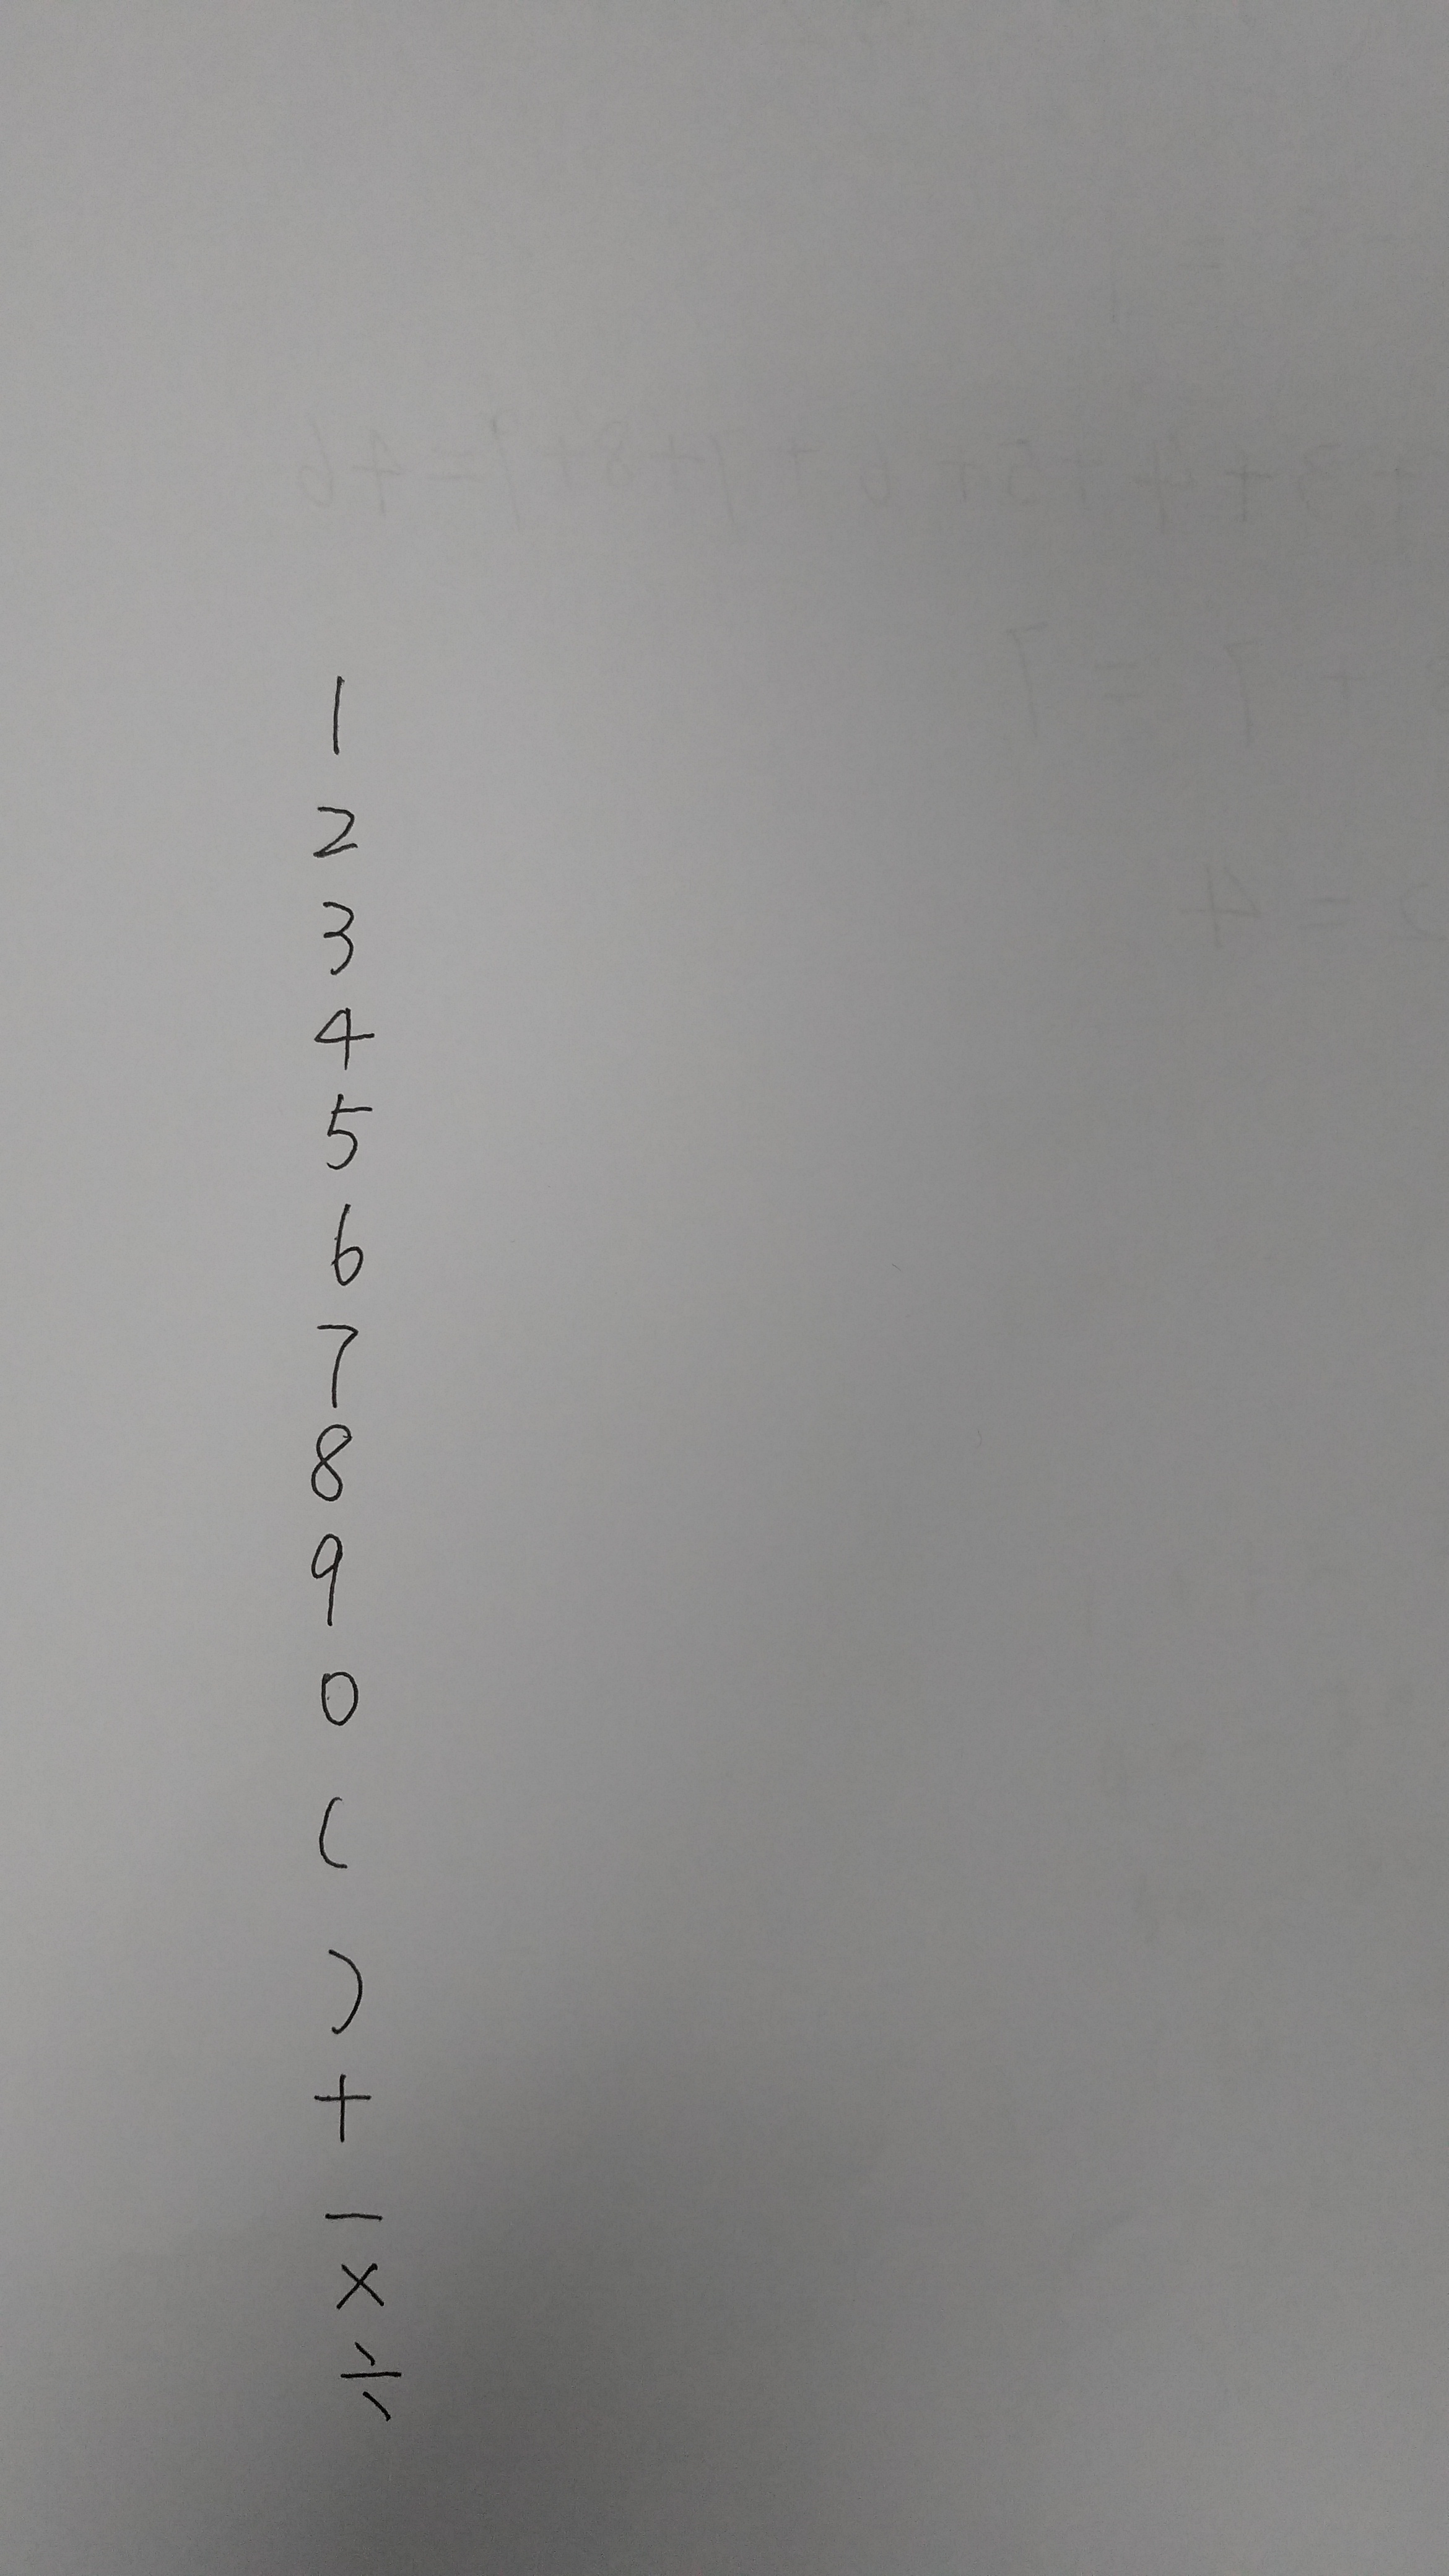 1
2
3
4
5
6
7
8
9
0
(
)
+
−
×
÷